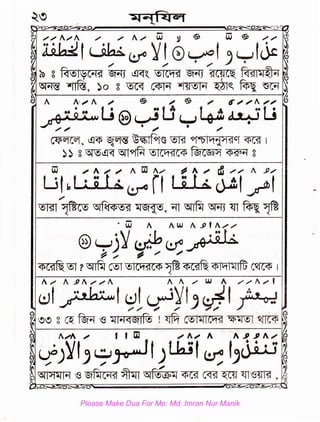 ২৩ মন্‌যিল
وَاصِبٌ ﴿۹﴾ اِلَّا مَنْ خَطِفَ الْخَطْفَةَ
৯ ঃ বিতাড়নের জন্য এবং তাদের জন্য রয়েছে বিরামহীন
অনন্ত শাস্তি, ১০ ঃ তবে কোন শয়তান হঠাৎ কিছু শুনে
فَاَتْبَعَهٗ شِهَابٌ ثَاقِبٌ ﴿۱۰﴾ فَاسْتَفْتِهِمْ
ফেললে, এক জ্বলন্ত উল্কাপিণ্ড তার পশ্চাদ্বনুসরণ করে।
১১ ঃ অতএব আপনি তাদেরকে জিজ্ঞেস করুন ঃ
اَهُمْ اَشَدُّ خَلْقًا اَمْ مَّنْ خَلَقْنَا ؕ اِنَّا
তারা সৃষ্টিতে অধিকতর মজবুত, না আমি অন্য যা কিছু সৃষ্টি
خَلَقْنٰهُمْ مِّنْ طِیْنٍ لَّازِبٍ ﴿۱۱﴾
করেছি তা? আমি তো তাদেরকে সৃষ্টি করেছি কাদামাটি থেকে।
یٰمَعْشَرَ الْجِنِّ وَالْاِنْسِ اِنِ اسْتَطَعْتُمْ اَنْ
৩৩ ঃ হে জিন ও মানবজাতি! যদি তোমাদের ক্ষমতা থাকে
تَنْفُذُوْا مِنْ اَقْطَارِ السَّمٰوٰتِ وَالْاَرْضِ
আসমান ও জমিনের সীমা অতিক্রম করে বের হয়ে যাওয়ার,
Please Make Dua For Me: Md. Imran Nur Manik